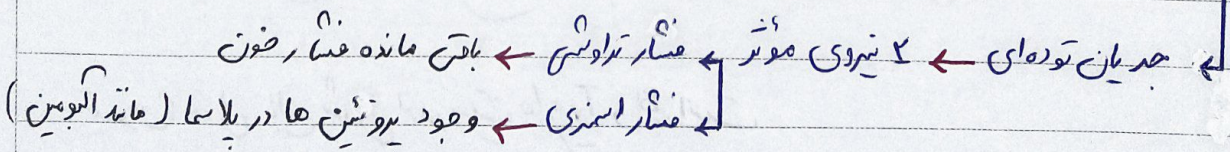 جریان توده‌ای ← ۲ نیروی مؤثر ← فشار تراوشی ← باقی مانده فشار خون
فشار اسمزی ← وجود پروتئین ها در پلاسما (مانند آلبومین)